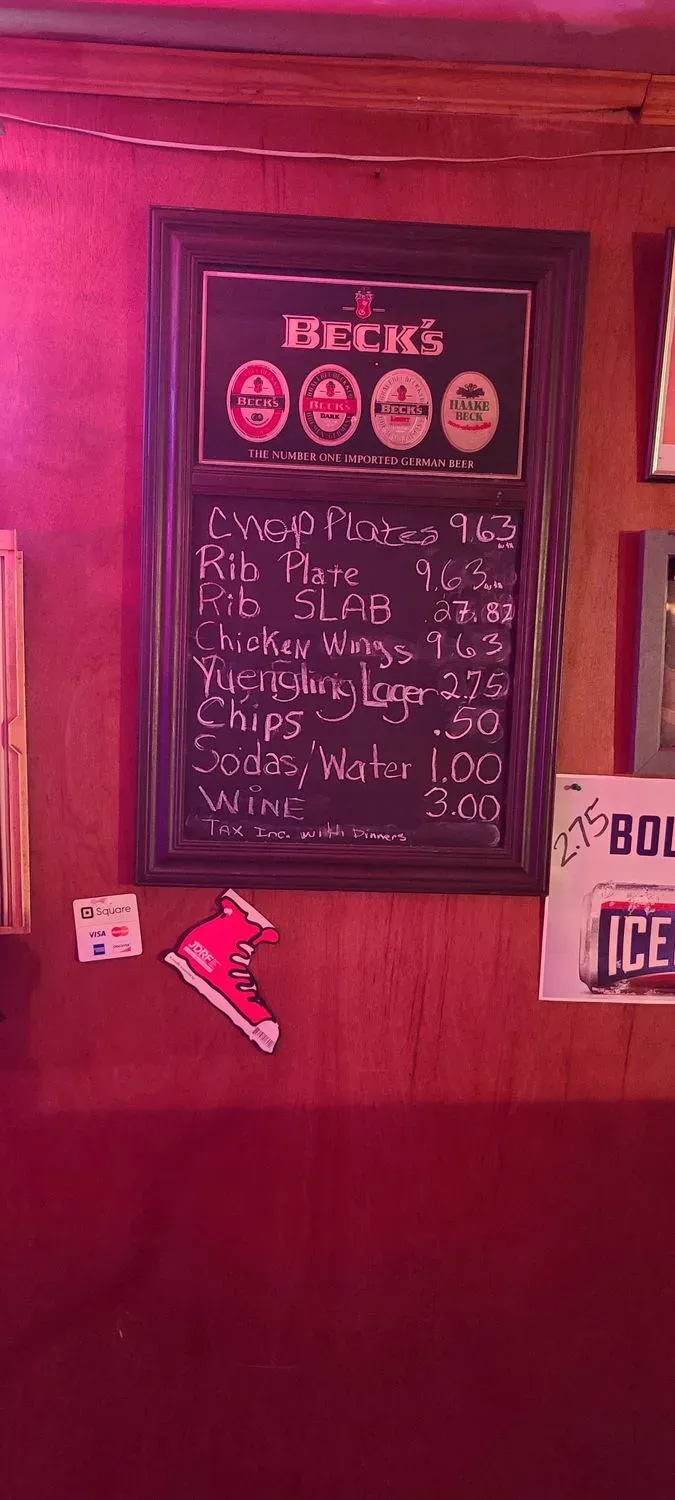 BECK'S
BECK'S
BECK'S
DARK
BECK'S
LIGHT
HAAKE
BECK
THE NUMBER ONE IMPORTED GERMAN BEER
Chop Plates 9.63
Rib Plate 9.63
Rib SLAB 27.82
Chicken Wings 9.63
Yuengling Lager 2.75
Chips .50
Sodas/Water 1.00
WINE 3.00
TAX Inc. with Dinners
2.75 BOL
ICE
Square
VISA
JDRF